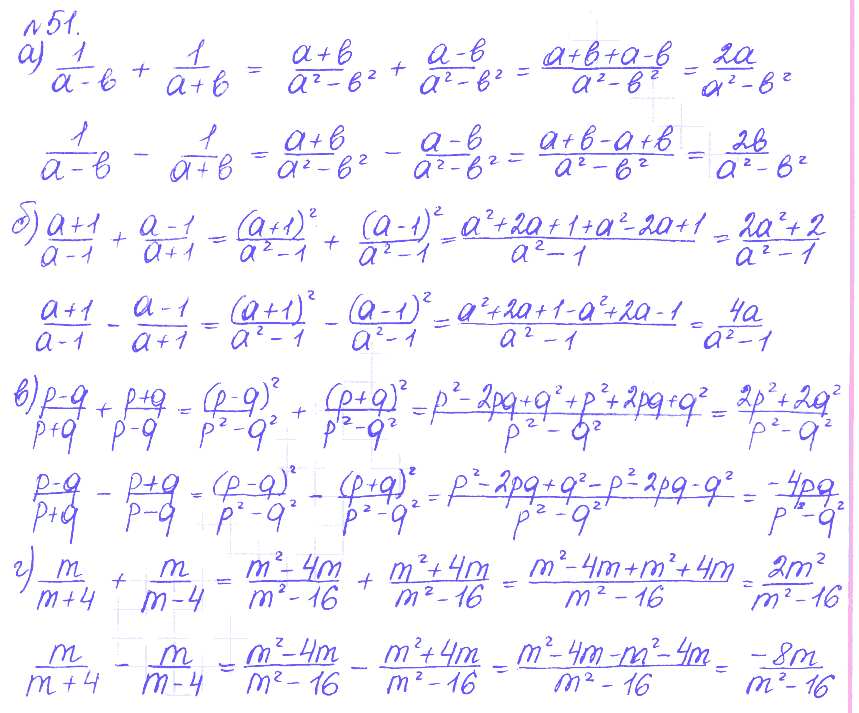 №51.
а) 1/(a-b) + 1/(a+b) = (a+b)/(a²-b²) + (a-b)/(a²-b²) = (a+b+a-b)/(a²-b²) = 2a/(a²-b²)
1/(a-b) - 1/(a+b) = (a+b)/(a²-b²) - (a-b)/(a²-b²) = (a+b-a+b)/(a²-b²) = 2b/(a²-b²)
б) (a+1)/(a-1) + (a-1)/(a+1) = (a+1)²/(a²-1) + (a-1)²/(a²-1) = (a²+2a+1+a²-2a+1)/(a²-1) = (2a²+2)/(a²-1)
(a+1)/(a-1) - (a-1)/(a+1) = (a+1)²/(a²-1) - (a-1)²/(a²-1) = (a²+2a+1-a²+2a-1)/(a²-1) = 4a/(a²-1)
в) (p-q)/(p+q) + (p+q)/(p-q) = (p-q)²/(p²-q²) + (p+q)²/(p²-q²) = (p²-2pq+q²+p²+2pq+q²)/(p²-q²) = (2p²+2q²)/(p²-q²)
(p-q)/(p+q) - (p+q)/(p-q) = (p-q)²/(p²-q²) - (p+q)²/(p²-q²) = (p²-2pq+q²-p²-2pq-q²)/(p²-q²) = -4pq/(p²-q²)
г) m/(m+4) + m/(m-4) = (m²-4m)/(m²-16) + (m²+4m)/(m²-16) = (m²-4m+m²+4m)/(m²-16) = 2m²/(m²-16)
m/(m+4) - m/(m-4) = (m²-4m)/(m²-16) - (m²+4m)/(m²-16) = (m²-4m-m²-4m)/(m²-16) = -8m/(m²-16)